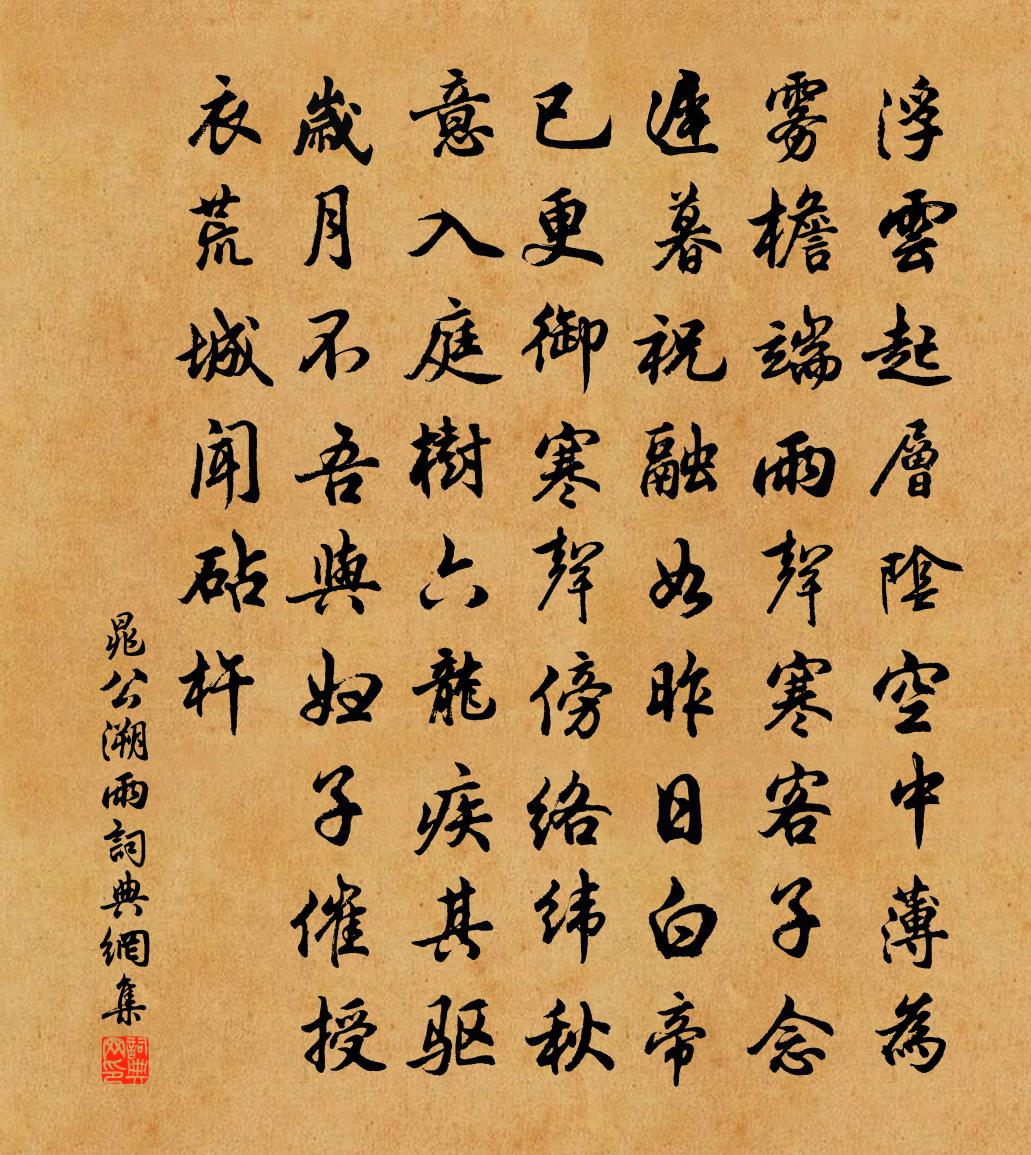 浮雲起層陰空中薄為
雾檐端雨聲寒客子念
遲暮祝融如昨日白帝
已更御寒聲傍络緯秋
意入庭樹六龍疾其驱
歲月不吾與婦子催授
衣荒城聞砧杵
晁公溯雨詞典網集
詞典网印